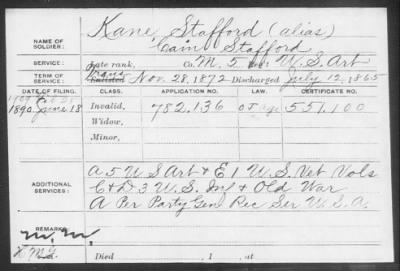 Kane, Stafford (alias)
NAME OF SOLDIER: Cain Stafford
SERVICE: Late rank, Co. M, 5 Reg't U.S. Art
TERM OF SERVICE: Enlisted Nov. 28, 1872 Discharged July 12, 1865
DATE OF FILING. CLASS. APPLICATION NO. LAW. CERTIFICATE NO.
1890 June 18 Invalid, 782.136 551.100
Widow,
Minor,
A 5 U S Art & E 1 U.S. Vet Vols
ADDITIONAL SERVICES: C & D 3 U.S. Inf & Old War
A Per Party Gen Rec Ser U.S.A.
REMARKS:
Died , 1 , at